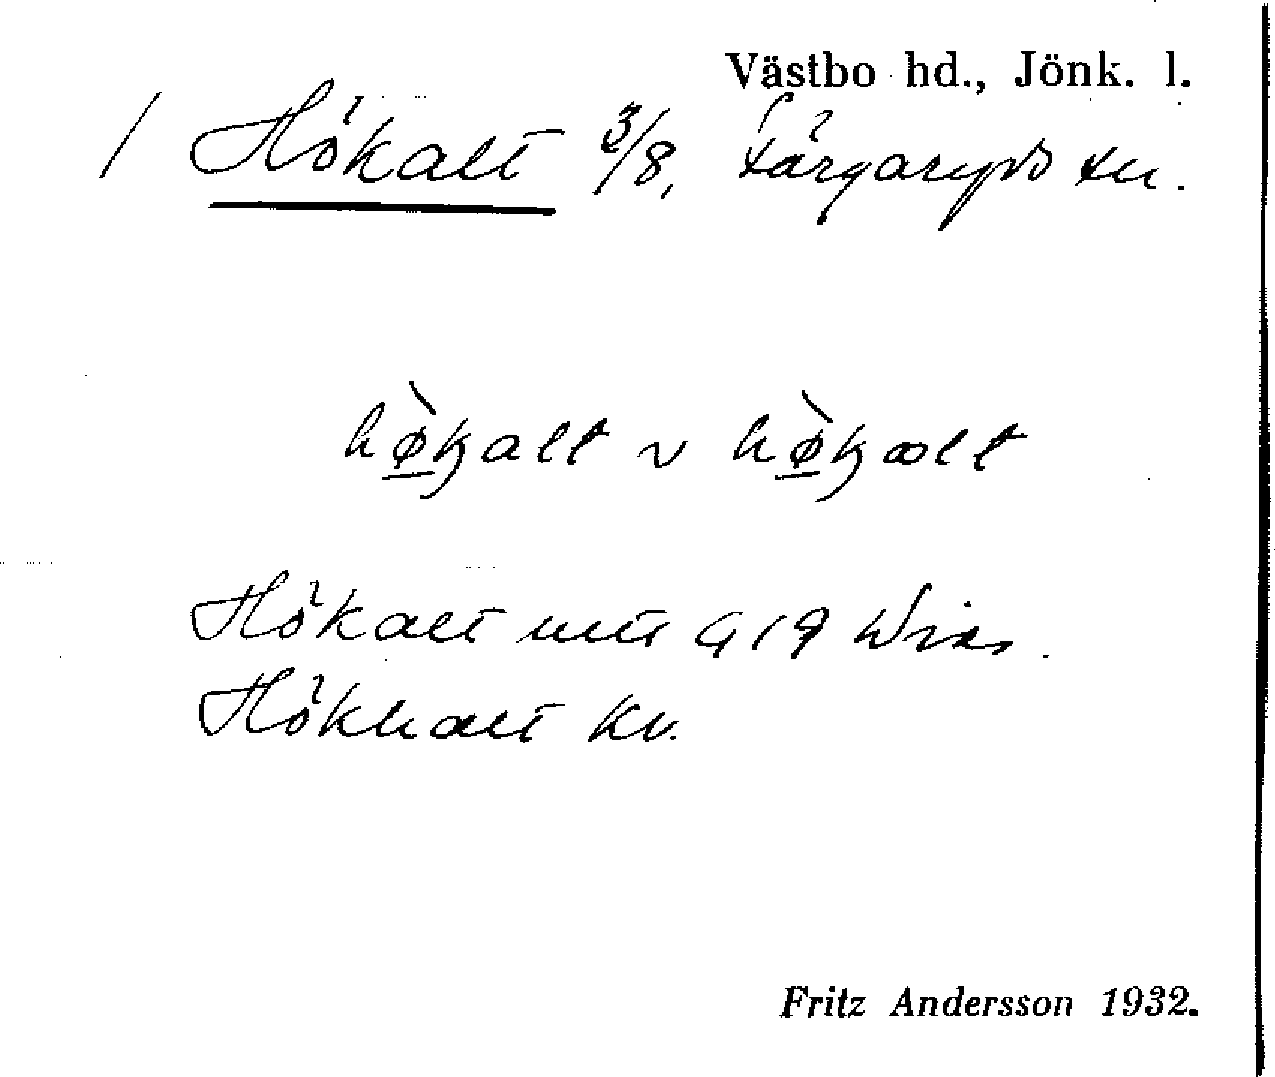 Västbo hd., Jönk. l.
/ Hökalt 3/8, Färgaryds sn.
hø̀kalt ~ hø̀kαlt
Hökalt mtl 419 Wiks.
Hökhalt kv.
Fritz Andersson 1932.